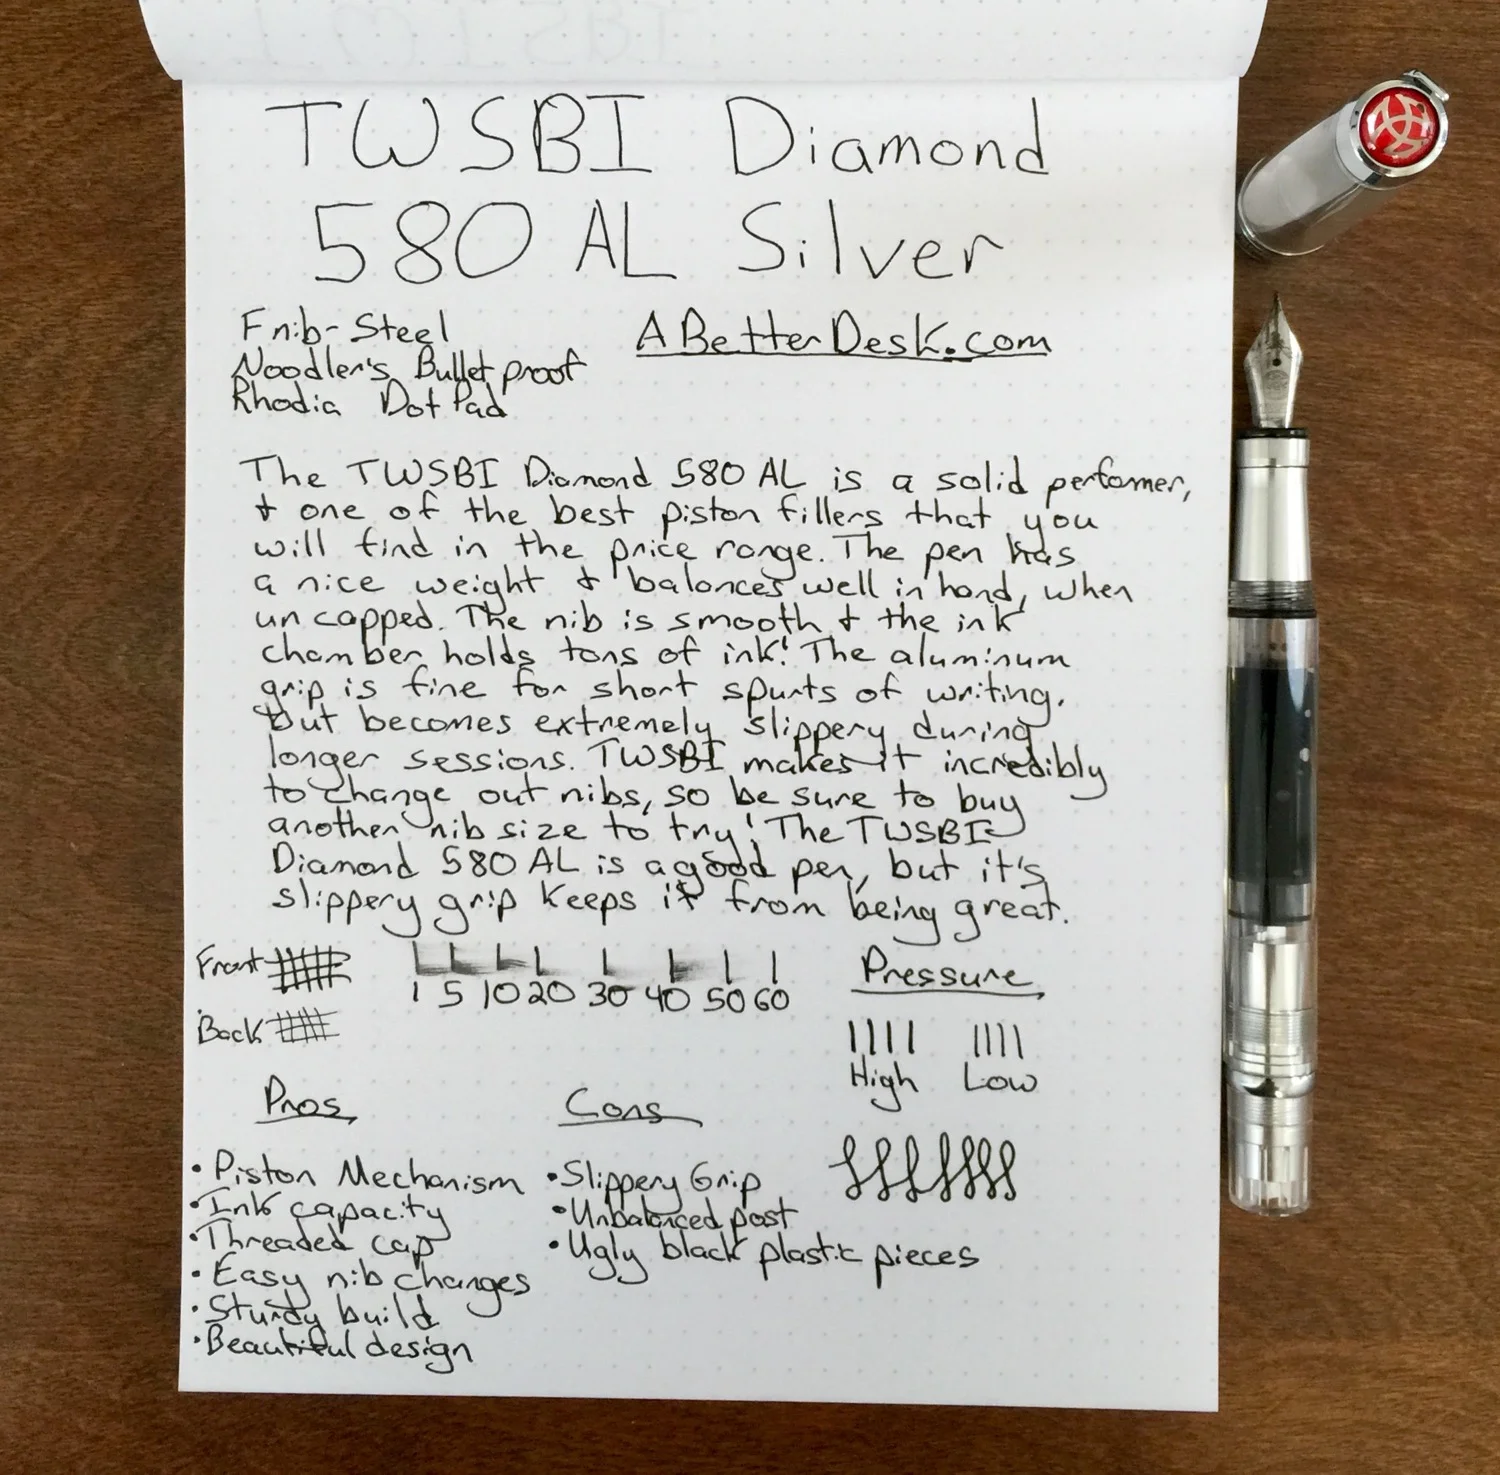 TWSBI Diamond
580 AL Silver
F nib - Steel
Noodler's Bulletproof
Rhodia Dot Pad
ABetterDesk.com
The TWSBI Diamond 580 AL is a solid performer,
& one of the best piston fillers that you
will find in the price range. The pen has
a nice weight & balances well in hand, when
uncapped. The nib is smooth & the ink
chamber holds tons of ink! The aluminum
grip is fine for short spurts of writing.
but becomes extremely slippery during
longer sessions. TWSBI makes it incredibly
to change out nibs, so be sure to buy
another nib size to try! The TWSBI
Diamond 580 AL is a good pen, but it's
slippery grip keeps it from being great.
Front
1 5 10 20 30 40 50 60
Back
Pressure
High Low
Pros
• Piston Mechanism
• Ink capacity
• Threaded cap
• Easy nib changes
• Sturdy build
• Beautiful design
Cons
• Slippery Grip
• Unbalanced post
• Ugly black plastic pieces